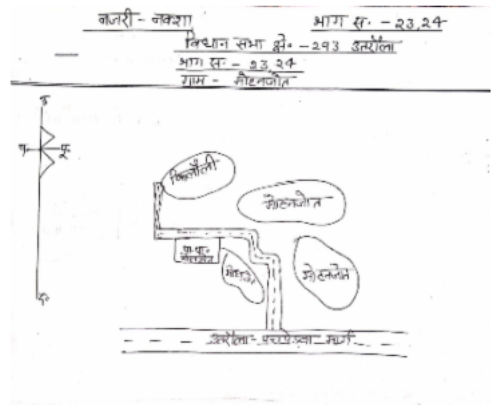 नजरी - नक्शा
भाग सं. - 23,24
विधान सभा क्षे. - 293 उतरौला
भाग सं. - 23,24
ग्राम - मोहनजोत
उ
प.
पू.
द.
मोहनजोत
प्रा.पा.
मोहनजोत
मोहनजोत
उतरौला - पचपेड़वा मार्ग